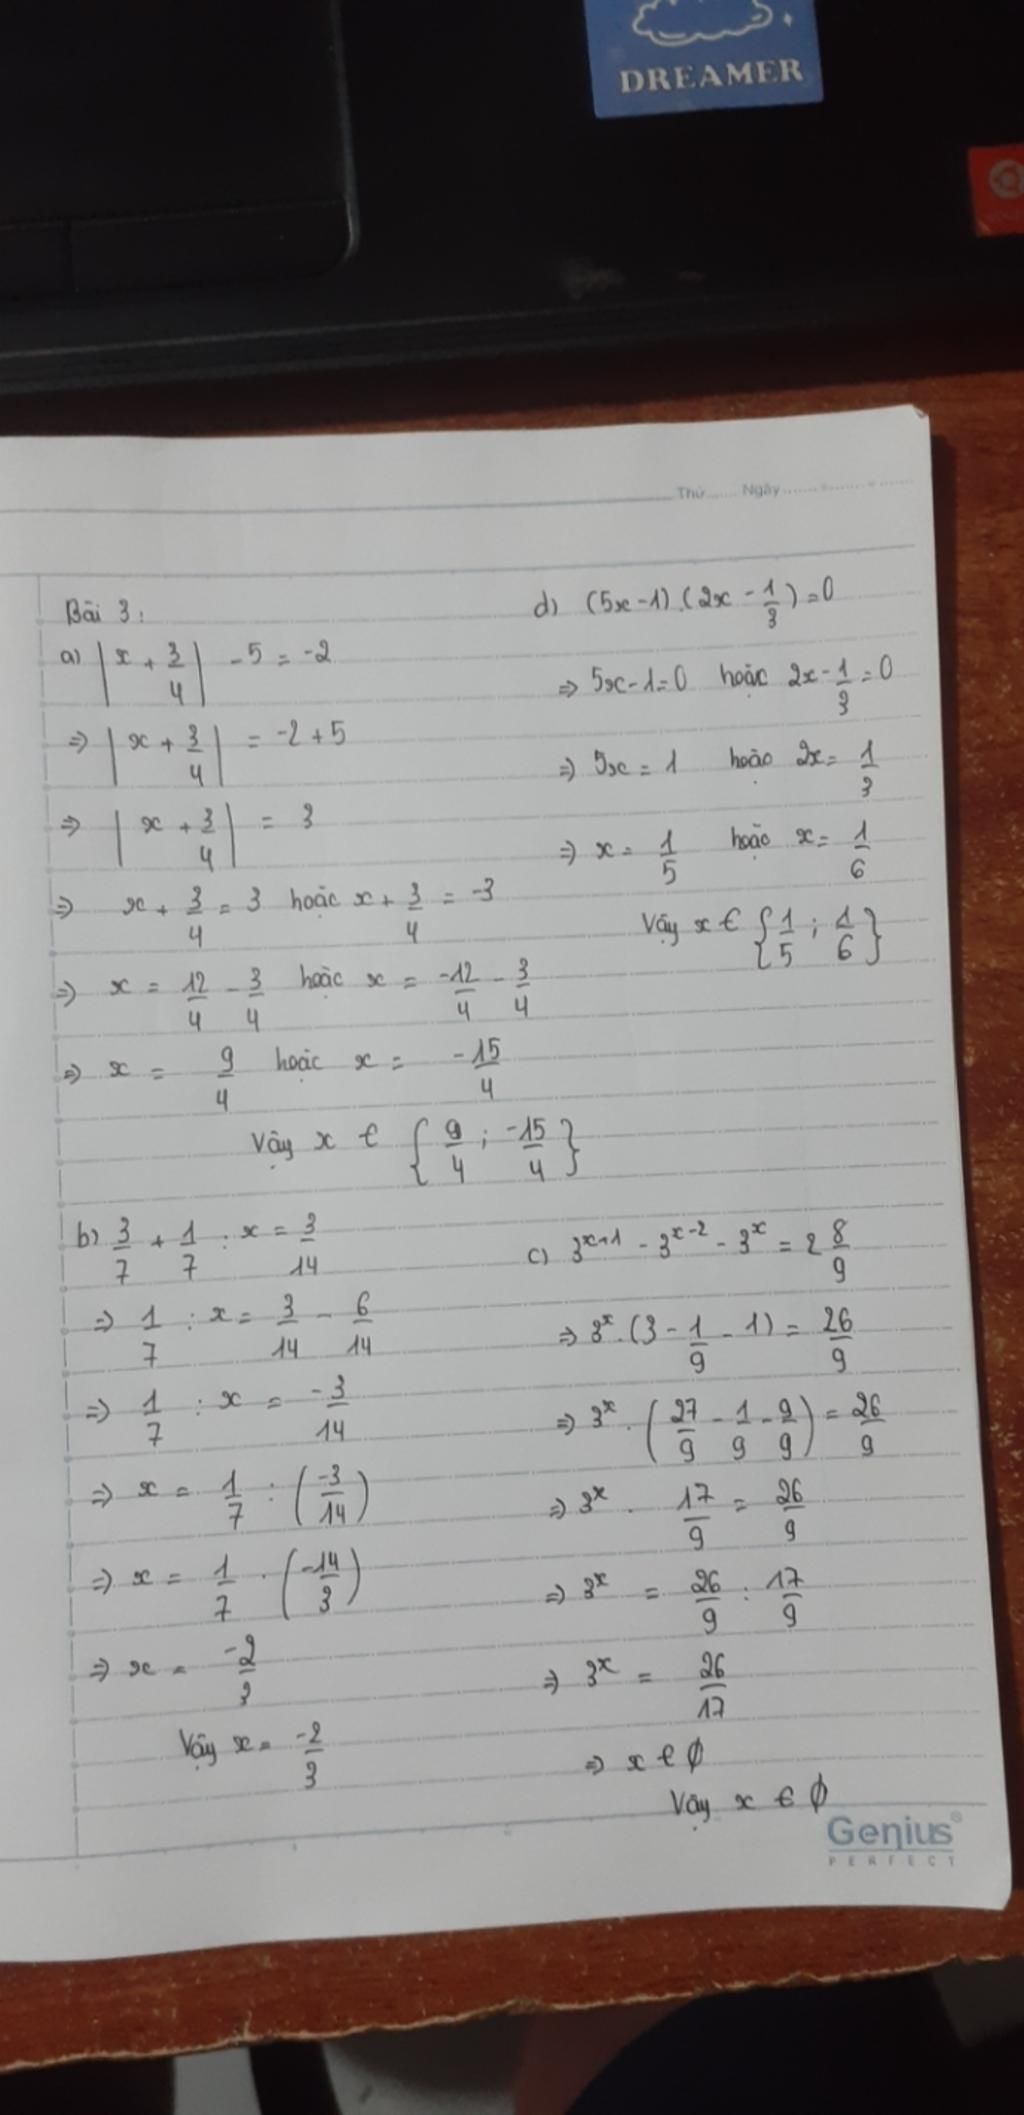 DREAMER
Thứ...... Ngày
Bài 3:
a) |x + 3/4| - 5 = -2
=> |x + 3/4| = -2 + 5
=> |x + 3/4| = 3
=> x + 3/4 = 3 hoặc x + 3/4 = -3
=> x = 12/4 - 3/4 hoặc x = -12/4 - 3/4
=> x = 9/4 hoặc x = -15/4
Vậy x ∈ {9/4 ; -15/4}
b) 3/7 + 1/7 : x = 3/14
=> 1/7 : x = 3/14 - 6/14
=> 1/7 : x = -3/14
=> x = 1/7 : (-3/14)
=> x = 1/7 . (-14/3)
=> x = -2/3
Vậy x = -2/3
d) (5x - 1).(2x - 1/3) = 0
=> 5x - 1 = 0 hoặc 2x - 1/3 = 0
=> 5x = 1 hoặc 2x = 1/3
=> x = 1/5 hoặc x = 1/6
Vậy x ∈ {1/5 ; 1/6}
c) 3^(x+1) - 3^(x-2) - 3^x = 2 8/9
=> 3^x . (3 - 1/9 - 1) = 26/9
=> 3^x . (27/9 - 1/9 - 9/9) = 26/9
=> 3^x . 17/9 = 26/9
=> 3^x = 26/9 : 17/9
=> 3^x = 26/17
=> x ∈ ∅
Vậy x ∈ ∅
Genius®
PERFECT